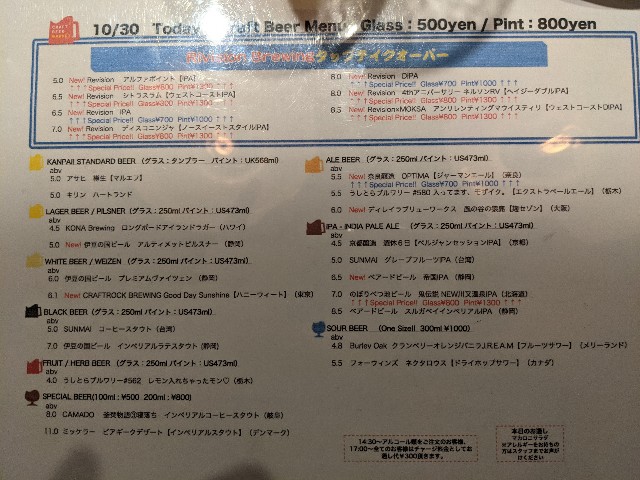 CRAFT BEER MARKET
10/30 Today Craft Beer Menu Glass：500yen / Pint：800yen
Revision Brewingタップテイクオーバー
5.0 New! Revision アルファポイント【IPA】
↑↑↑Special Price!! Glass¥800 Pint¥1300↑↑↑
6.5 New! Revision シトラスラム【ウェストコーストIPA】
↑↑↑Special Price!! Glass¥800 Pint¥1300↑↑↑
6.5 New! Revision IPA
↑↑↑Special Price!! Glass¥700 Pint¥1000↑↑↑
7.0 New! Revision ディスコニンジャ【ノースイーストスタイルIPA】
↑↑↑Special Price!! Glass¥800 Pint¥1300↑↑↑
8.0 New! Revision DIPA
↑↑↑Special Price!! Glass¥700 Pint¥1000↑↑↑
8.0 New! Revision 4thアニバーサリー ネルソンRV【ヘイジーダブルIPA】
↑↑↑Special Price!! Glass¥800 Pint¥1300↑↑↑
8.5 New! Revision×MOKSA アンリレンティングマウイスティリ【ウェストコーストDIPA】
↑↑↑Special Price!! Glass¥800 Pint¥1300↑↑↑
KANPAI STANDARD BEER （グラス：タンブラー パイント：UK568ml）
abv
5.0 アサヒ 樽生【マルエフ】
5.0 キリン ハートランド
LAGER BEER / PILSNER （グラス：250ml パイント：US473ml）
abv
4.5 KONA Brewing ロングボードアイランドラガー（ハワイ）
5.0 New! 伊豆の国ビール アルティメットピルスナー（静岡）
WHITE BEER / WEIZEN （グラス：250ml パイント：US473ml）
abv
6.0 伊豆の国ビール プレミアムヴァイツェン（静岡）
6.1 New! CRAFTROCK BREWING Good Day Sunshine【ハニーウィート】（東京）
BLACK BEER （グラス：250ml パイント：US473ml）
abv
5.0 SUNMAI コーヒースタウト（台湾）
7.0 伊豆の国ビール インペリアルラテスタウト（静岡）
FRUIT / HERB BEER （グラス：250ml パイント：US473ml）
abv
4.0 うしとらブルワリー#562 レモン入れちゃったモン♡（栃木）
SPECIAL BEER(100ml：¥500 200ml：¥800)
abv
8.0 CAMADO 釜芳物語③ インペリアルコーヒースタウト（岐阜）
11.0 ミッケラー ビアギークデザート【インペリアルスタウト】（デンマーク）
ALE BEER （グラス：250ml パイント：US473ml）
abv
5.0 New! 奈良醸造 OPTIMA【ジャーマンエール】（奈良）
↑↑↑Special Price!! Glass¥700 Pint¥1000↑↑↑
5.5 うしとらブルワリー #580 入ってます、モザイク。【エクストラペールエール】（栃木）
6.0 New! ディレイラブリューワークス 風の谷の【セゾン】（大阪）
IPA - INDIA PALE ALE （グラス：250ml パイント：US473ml）
abv
4.5 京都醸造 週休6日【ベルジャンセッションIPA】（京都）
5.0 SUNMAI グレープフルーツIPA（台湾）
6.5 New! ベアードビール 帝国IPA（静岡）
7.0 のぼりべつ地ビール 鬼伝説 NEW川又温泉IPA（北海道）
↑↑↑Special Price!! Glass¥800 Pint¥1300↑↑↑
6.5 ベアードビール スルガベイインペリアルIPA（静岡）
SOUR BEER (One Size!! 300ml ¥1000)
abv
4.8 Burley Oak クランベリーオレンジバニラJ.R.E.A.M【フルーツサワー】（メリーランド）
5.5 フォーウィンズ ネクタロウス【ドライホップサワー】（カナダ）
14:30〜アルコール類をご注文のお客様、
17:00〜全てのお客様はチャージ料金としてお
通し代¥300頂きます。
本日のお通し
マカロニサラダ
※アレルギーをお持ちの
方はスタッフまでお声が
けください